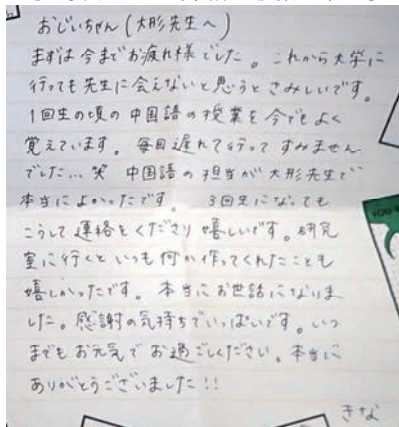 おじいちゃん(大形先生へ)
まずは今までお疲れ様でした。これから大学に
行っても先生に会えないと思うとさみしいです。
1回生の頃の中国語の授業を今でもよく
覚えています。毎回遅れて行ってすみません
でした…笑 中国語の担当が大形先生で
本当によかったです。 3回生になっても
こうして連絡をくださり嬉しいです。研究
室に行くといつも何か作ってくれたことも
嬉しかったです。本当にお世話になりま
した。感謝の気持ちでいっぱいです。いつ
までもお元気でお過ごしください。本当に
ありがとうございました!!
きな